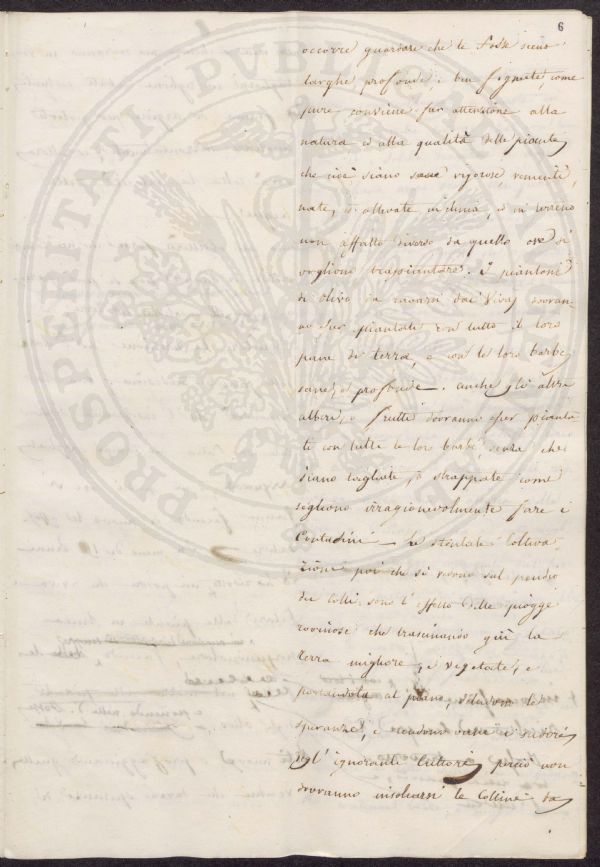 6
occorre guardare che le Fosse sieno
larghe profonde, e ben fognate, come
pure conviene far attenzione alla
natura ed alla qualità delle piante
che cioè siano vigorose,
nate, ed allevate in clima, ed in terreno
non affatto diverso da quello ove si
vogliono trapiantare. I piantoni
di olivo da cavarsi dai Vivaj dovran-
no esser piantati con tutto il loro
pane di terra, e con le loro barbe
sane, e profonde. Anche gli altri
alberi, e frutti dovranno esser pianta
ti con tutte le lor barbe, senza che
siano tagliate, o strappate come
sogliono irragionevolmente fare i
Contadini — Le stentate Coltiva-
zioni poi che si vedono sul pendio
dei colli sono l'effetto delle piogge
rovinose che trascinando giù la
terra migliore, e vegetale, e
portandola al piano, deludono le
speranze, e rendono vani i sudori
degl'ignoranti Cultori, perciò non
dovranno insolcarsi le Colline da
PROSPERITATI PUBLICAE